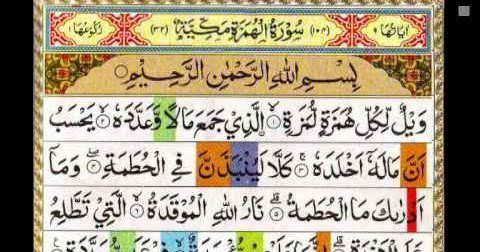 اٰيَاتُهَا ٩ (١٠٤) سُوْرَةُ الْهُمَزَةِ مَكِّيَّةٌ (٣٢) رُكُوْعُهَا ١
بِسْمِ اللهِ الرَّحْمٰنِ الرَّحِيْمِ
وَيْلٌ لِّكُلِّ هُمَزَةٍ لُّمَزَةِ ۙ١ الَّذِيْ جَمَعَ مَالًا وَّعَدَّدَهٗ ۙ٢ يَحْسَبُ
اَنَّ مَالَهٗٓ اَخْلَدَهٗ ۚ٣ كَلَّا لَيُنْۢبَذَنَّ فِي الْحُطَمَةِ ۖ٤ وَمَآ
اَدْرٰىكَ مَا الْحُطَمَةُ ۗ٥ نَارُ اللهِ الْمُوْقَدَةُ ۙ٦ الَّتِيْ تَطَّلِعُ